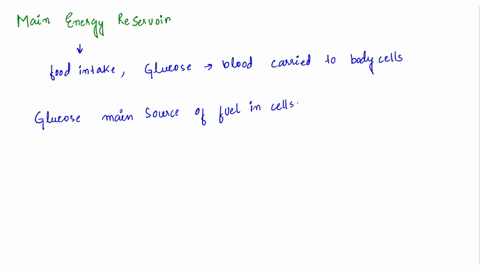 Main Energy Reservoir
food intake, Glucose → blood carried to body cells
Glucose main source of fuel in cells.